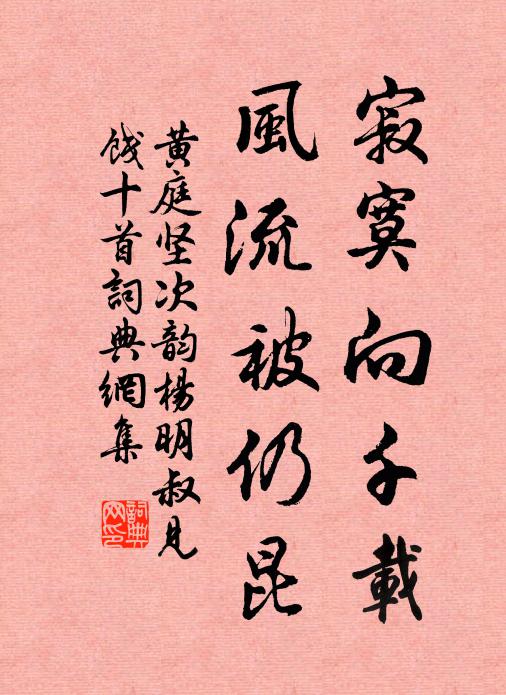 寂寞向千載
風流被仍昆
黄庭坚次韵楊明叔見
餞十首詞典網集
詞典
网印